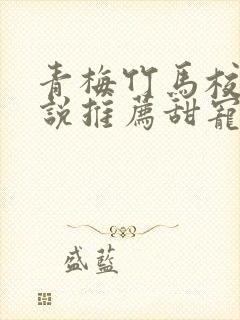 青梅竹馬校
説推薦甜寵
盛藍